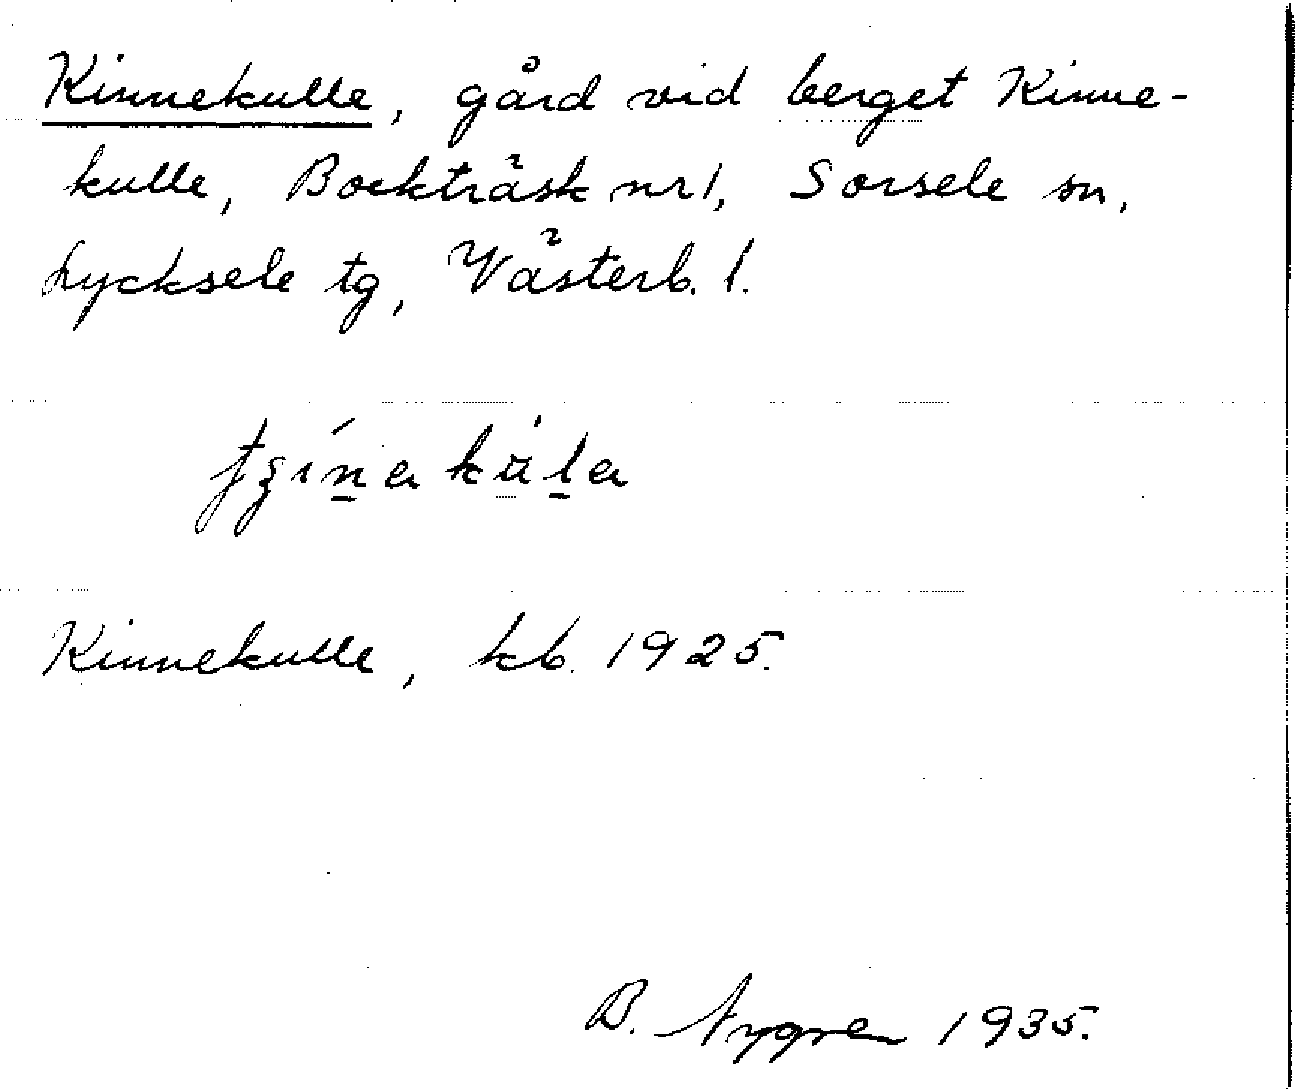 Kinnekulle, gård vid berget Kinne-
kulle, Bockträsk nr 1, Sorsele sn,
Lycksele tg, Västerb. l.
Kinnekulle, kb. 1925.
B. Nygren 1935.